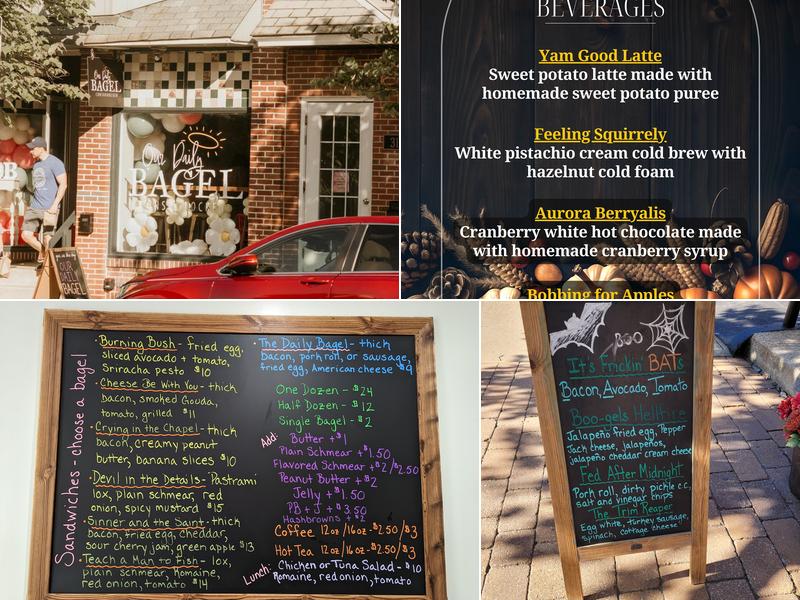 Our Daily
BAGEL
Our Daily
BAGEL
OUR
DAILY
BAGEL
BEVERAGES
Yam Good Latte
Sweet potato latte made with
homemade sweet potato puree
Feeling Squirrely
White pistachio cream cold brew with
hazelnut cold foam
Aurora Berryalis
Cranberry white hot chocolate made
with homemade cranberry syrup
Bobbing for Apples
Sandwiches - choose a bagel
· Burning Bush - fried egg,
sliced avocado + tomato,
Sriracha pesto $10
· Cheese Be With You - thick
bacon, smoked Gouda,
tomato, grilled $11
· Crying in the Chapel - thick
bacon, creamy peanut
butter, banana slices $10
· Devil in the Details - Pastrami
lox, plain schmear, red
onion, spicy mustard $15
· Sinner and the Saint - thick
bacon, fried egg, cheddar,
sour cherry jam, green apple $13
· Teach a Man to Fish - lox,
plain schmear, Romaine,
red onion, tomato $14
· The Daily Bagel - thick
bacon, pork roll, or sausage,
fried egg, American cheese $9
One Dozen - $24
Half Dozen - $12
Single Bagel - $2
Add:
Butter + $1
Plain Schmear + $1.50
Flavored Schmear + $2/$2.50
Peanut Butter + $2
Jelly + $1.50
PB + J + $3.50
Hashbrowns + $2
Coffee 12oz/16oz - $2.50/$3
Hot Tea 12oz/16oz - $2.50/$3
Lunch: Chicken or Tuna Salad - $10
Romaine, red onion, tomato
BOO
It's Frickin' BATs
Bacon, Avocado, Tomato
Boo-gels Hellfire
Jalapeño fried egg, Pepper
Jack cheese, jalapeños,
jalapeño cheddar cream cheese
Fed After Midnight
Pork roll, dirty pickle cc,
salt and vinegar chips
The Trim Reaper
Egg white, turkey sausage,
spinach, cottage cheese